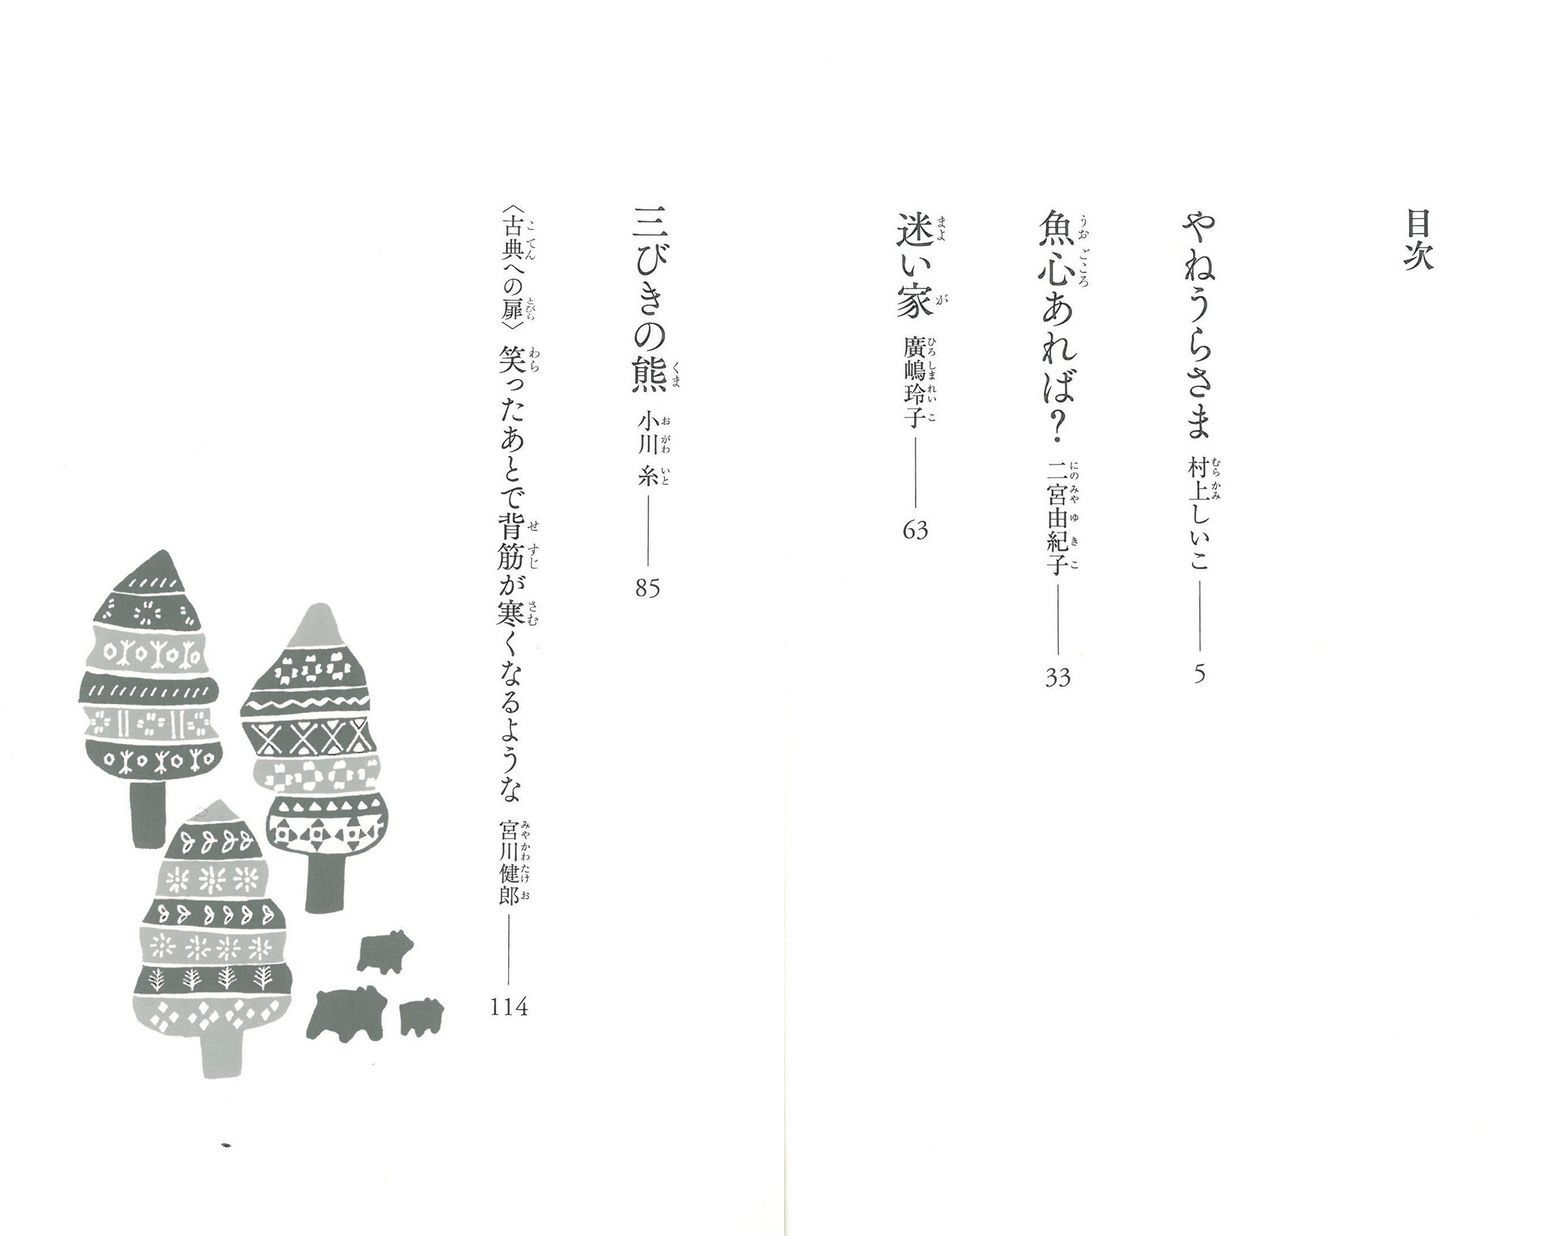 目次
やねうらさま 村上しいこ 5
魚心あれば？ 二宮由紀子 33
迷い家 廣嶋玲子 63
三びきの熊 小川 糸 85
〈古典への扉〉 笑ったあとで背筋が寒くなるような 宮川健郎 114